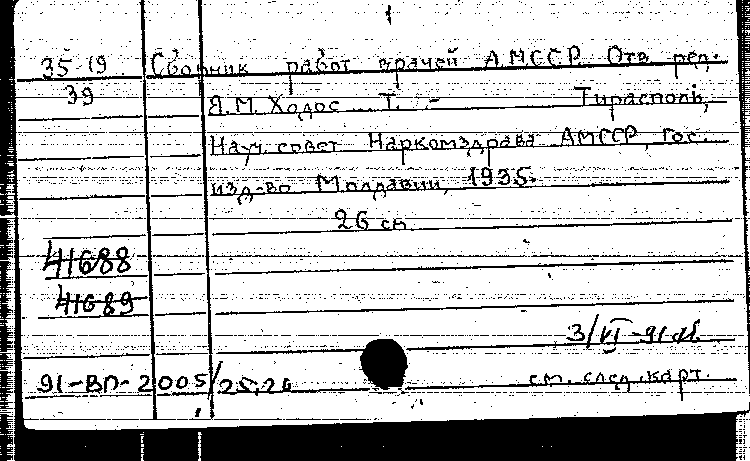 35-19 Сборник работ врачей АМССР. Отв. ред.
39 Я.М. Ходос Т. - Тирасполь,
Науч. совет Наркомздрава АМССР, Гос.
изд-во Молдавии, 1935.
26 см.
41688
41689
3/VI-91
91-ВП-2005/25,26 см. след. карт.